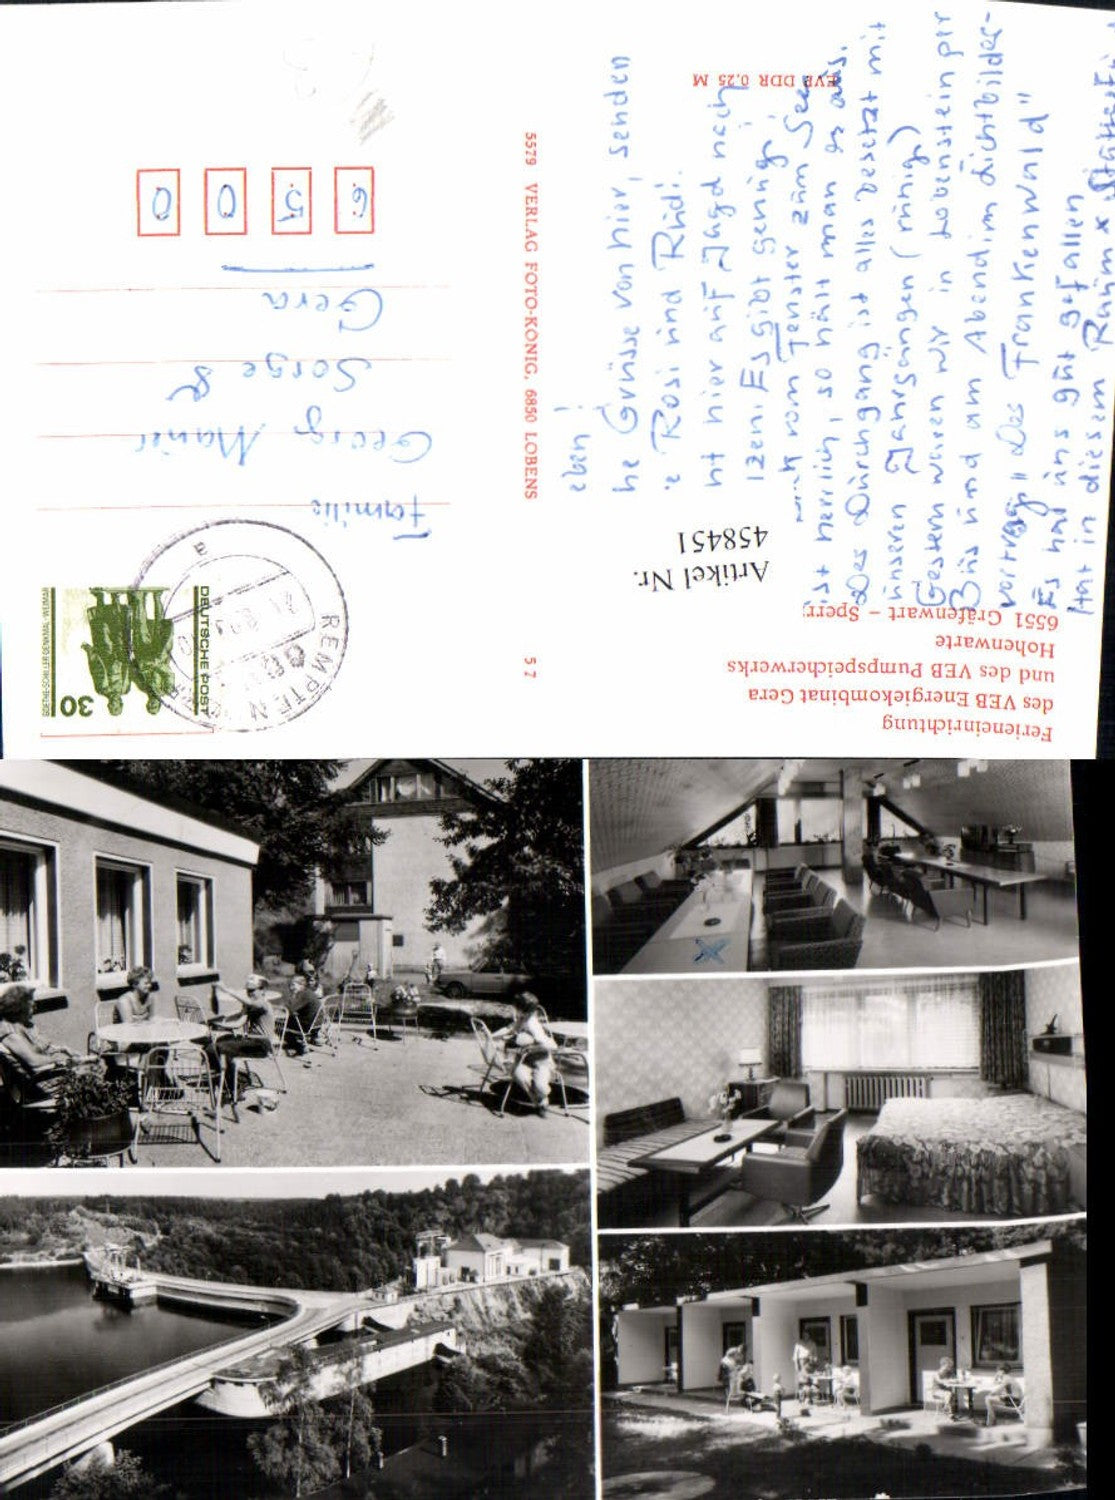 Ferieneinrichtung
des VEB Energiekombinat Gera
und des VEB Pumpspeicherwerks
Hohenwarte
6551 Gräfenwart – Sperr.
Artikel Nr.
458451
eben!
he Grüsse von hier, senden
e Rosi und Rudi.
ht hier auf Jagd nach
zen. Es gibt genug!
vom Fenster zum See
ist herrlich, so hält man es aus.
Der Durchgang ist alles besetzt mit
unseren Jahrgängen (
Gestern waren wir in Lobenstein per
Bus und am Abend im Lichtbilder-
vortrag "Der Frankenwald"
Es hat uns gut gefallen
Hat in diesem Raum x
EVP DDR 0,25 M
5 7
5579 VERLAG FOTO-KÖNIG, 6850 LOBENS
30
DEUTSCHE POST
GOETHE-SCHILLER-DENKMAL·WEIMAR
REMPTEN
Familie
Georg
Sorge
Gera
6 5 0 0